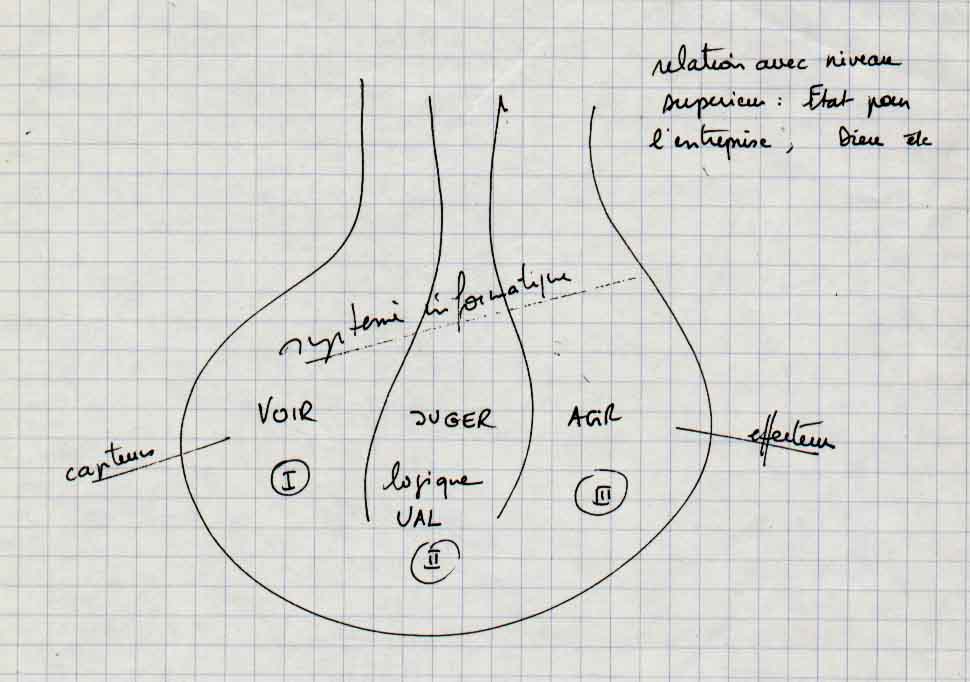 relation avec niveau
superieur : Etat pour
l'entreprise, Dieu etc
système informatique
VOIR
JUGER
AGIR
capteurs
effecteurs
I
logique
UAL
II
III